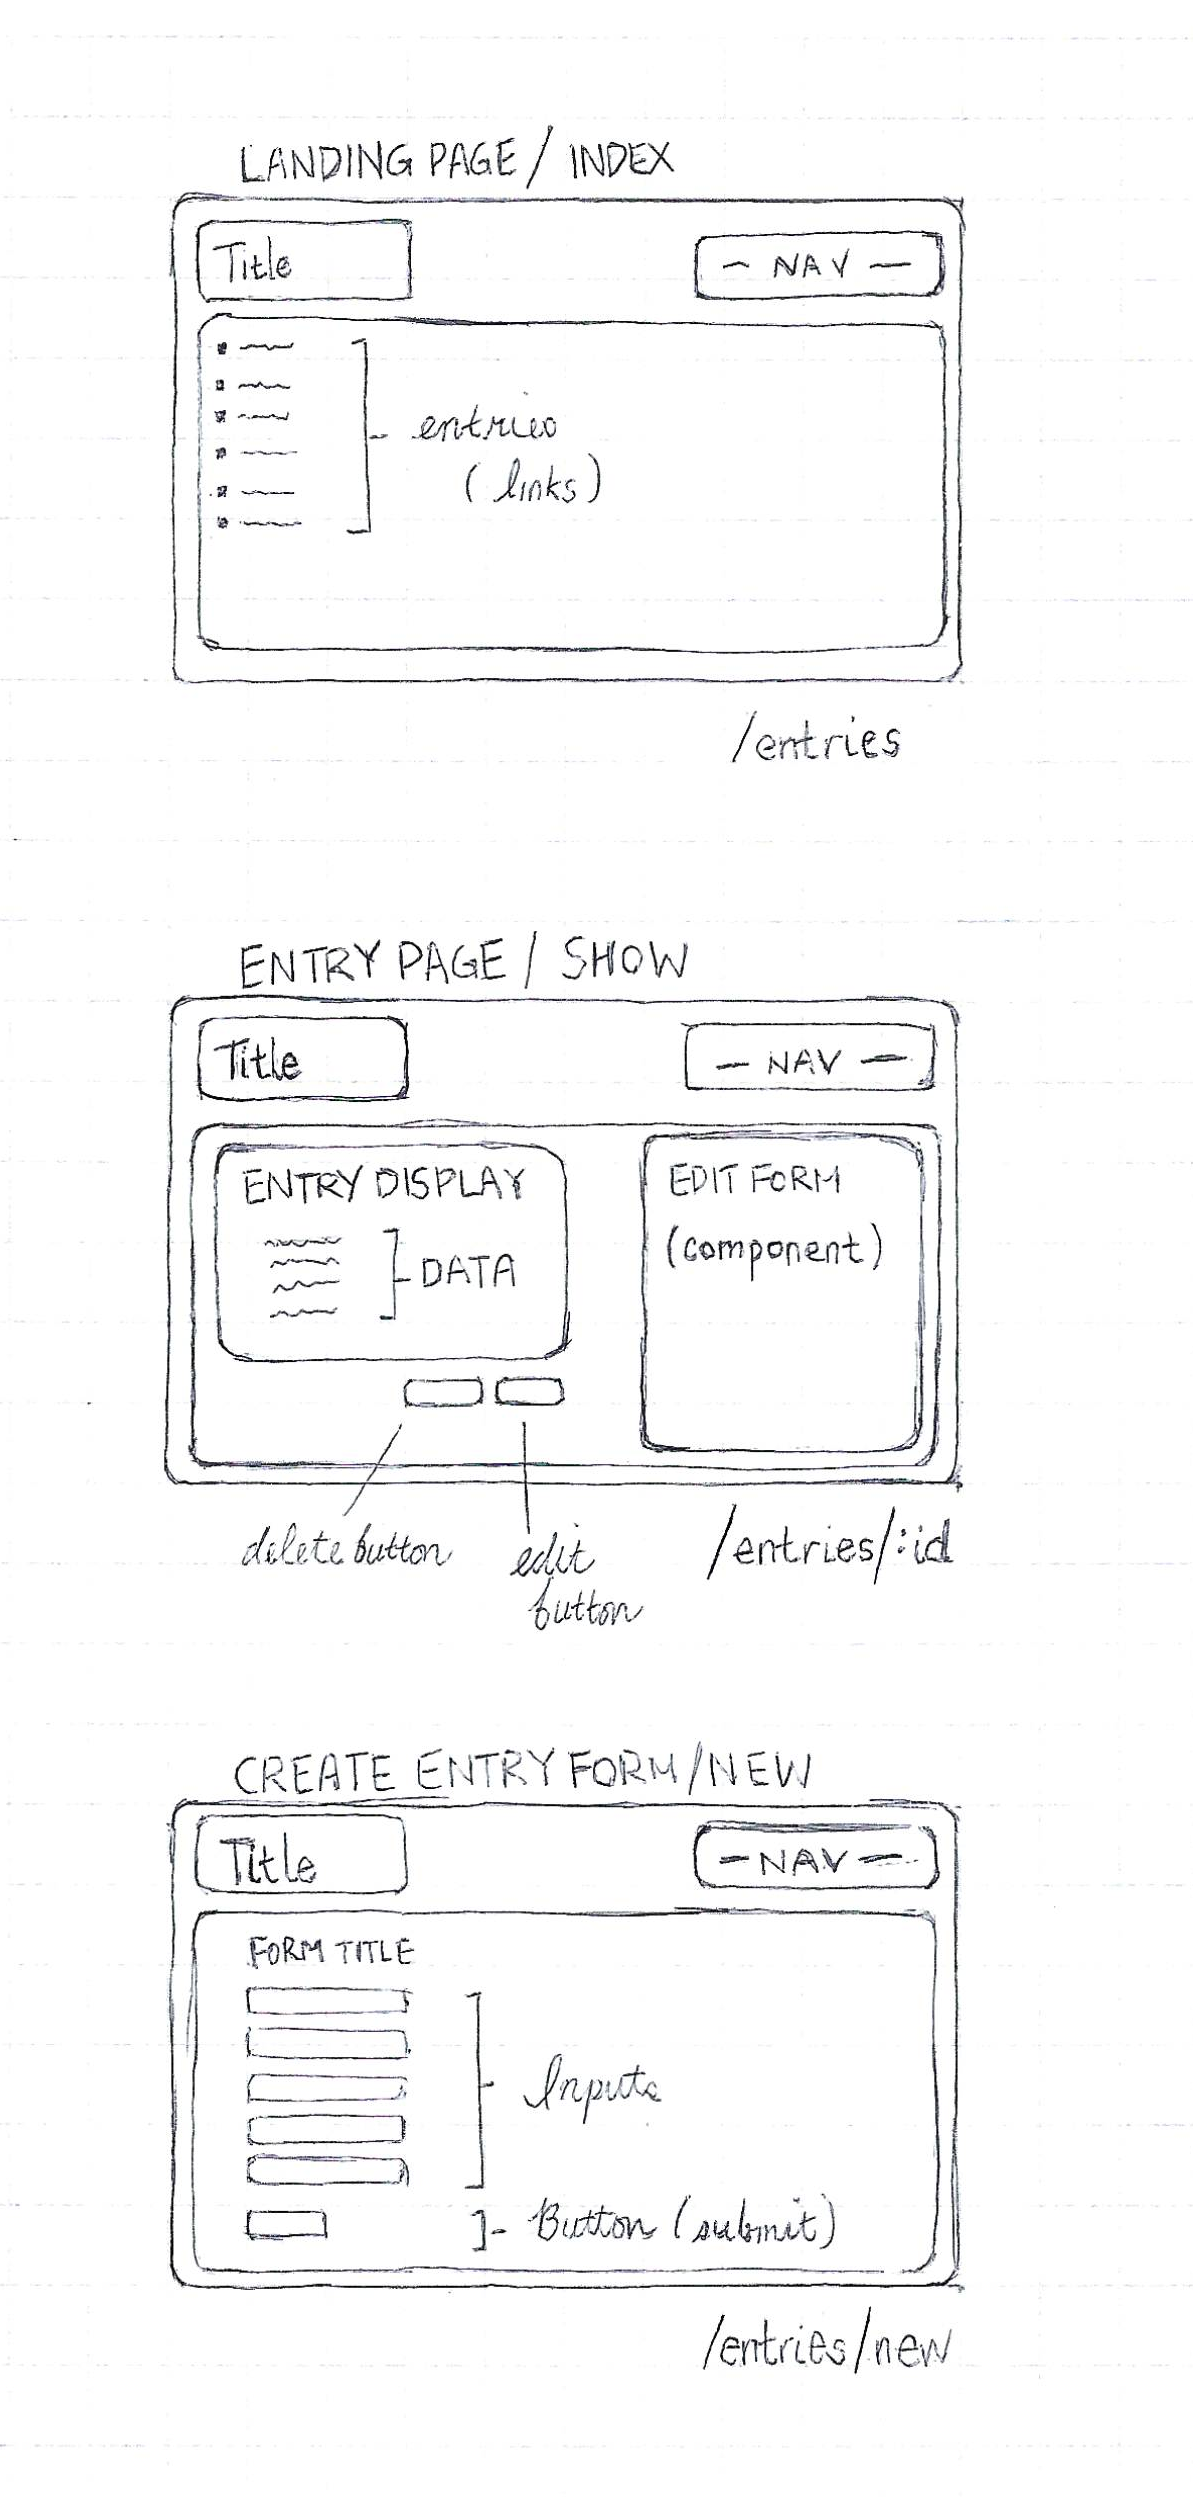 LANDING PAGE / INDEX
Title
- NAV -
entries
(links)
/entries
ENTRY PAGE / SHOW
Title
- NAV -
ENTRY DISPLAY
DATA
EDIT FORM
(component)
delete button
edit
button
/entries/:id
CREATE ENTRY FORM/NEW
Title
- NAV -
FORM TITLE
Inputs
Button (submit)
/entries/new